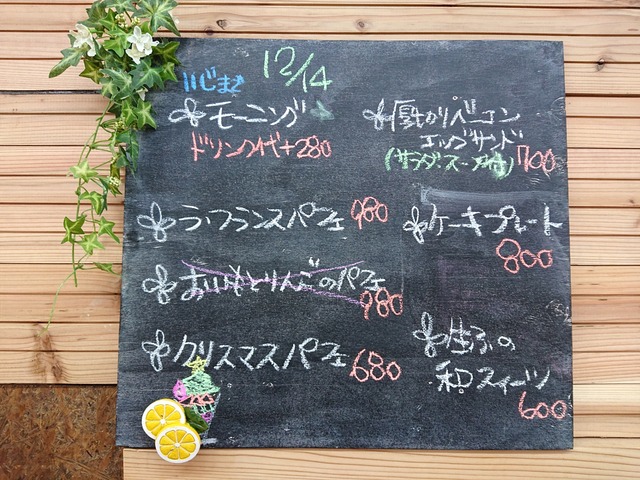 12/14
11じまで
モーニング
ドリンク代+280
ラ・フランスパフェ 980
おいもとりんごのパフェ
980
クリスマスパフェ 680
厚切りベーコン
エッグサンド
(サラダ・スープ付) 700
ケーキプレート
800
生ふの
和スイーツ
600